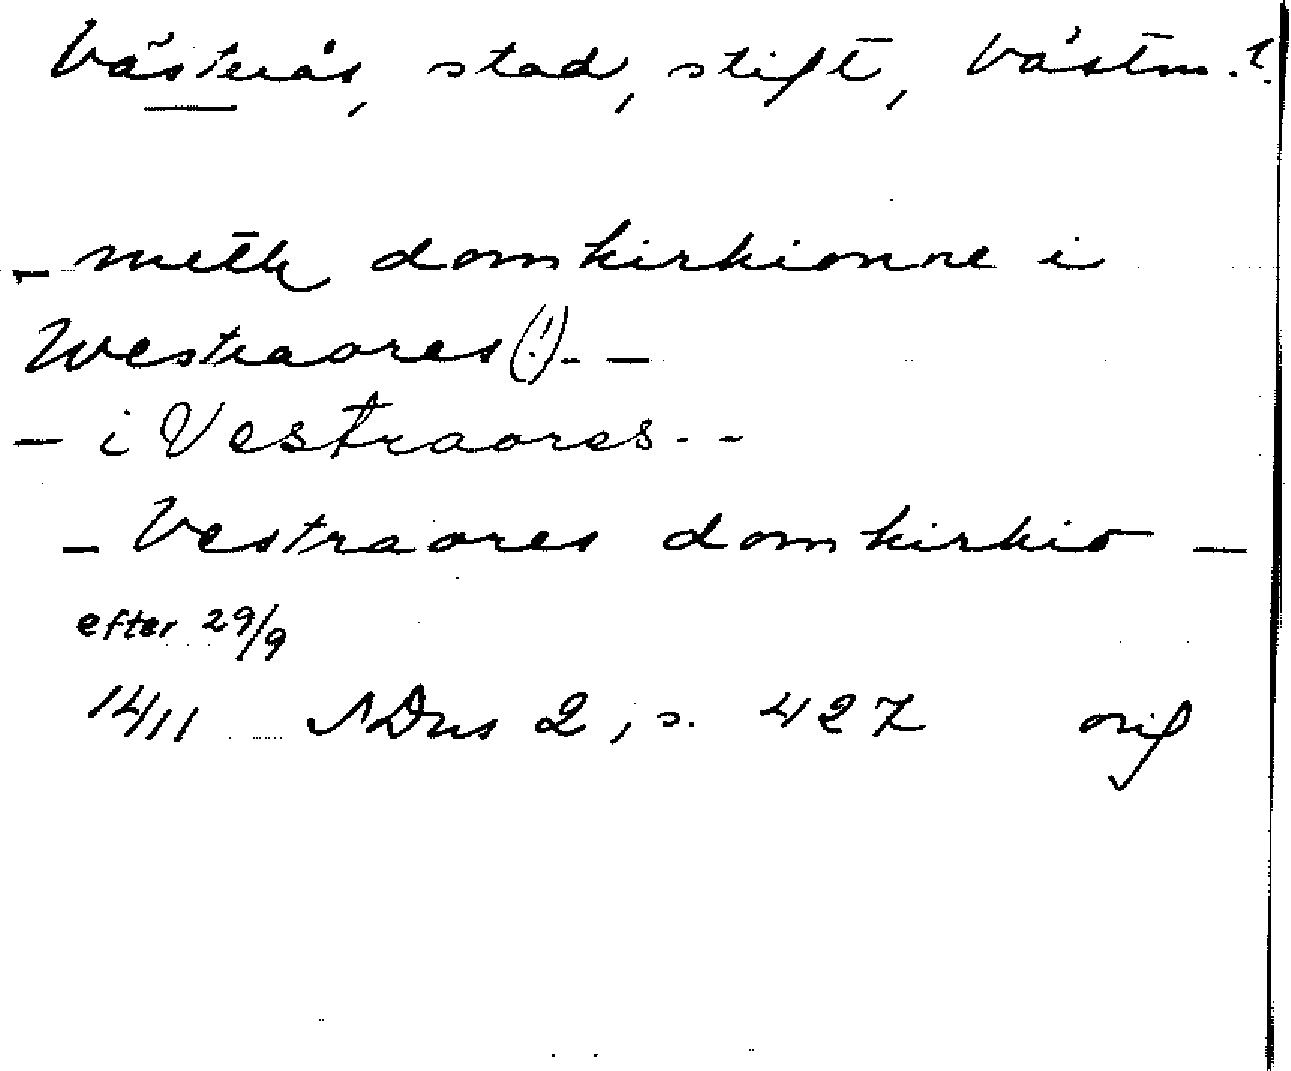 Västerås, stad, stift, Västm. l.
- meth domkirkionne i
Westraores(!)- -
- i Vestraores - -
- Vestraores domkirkio -
efter 29/9
14/11 SDns 2, s. 427 orig